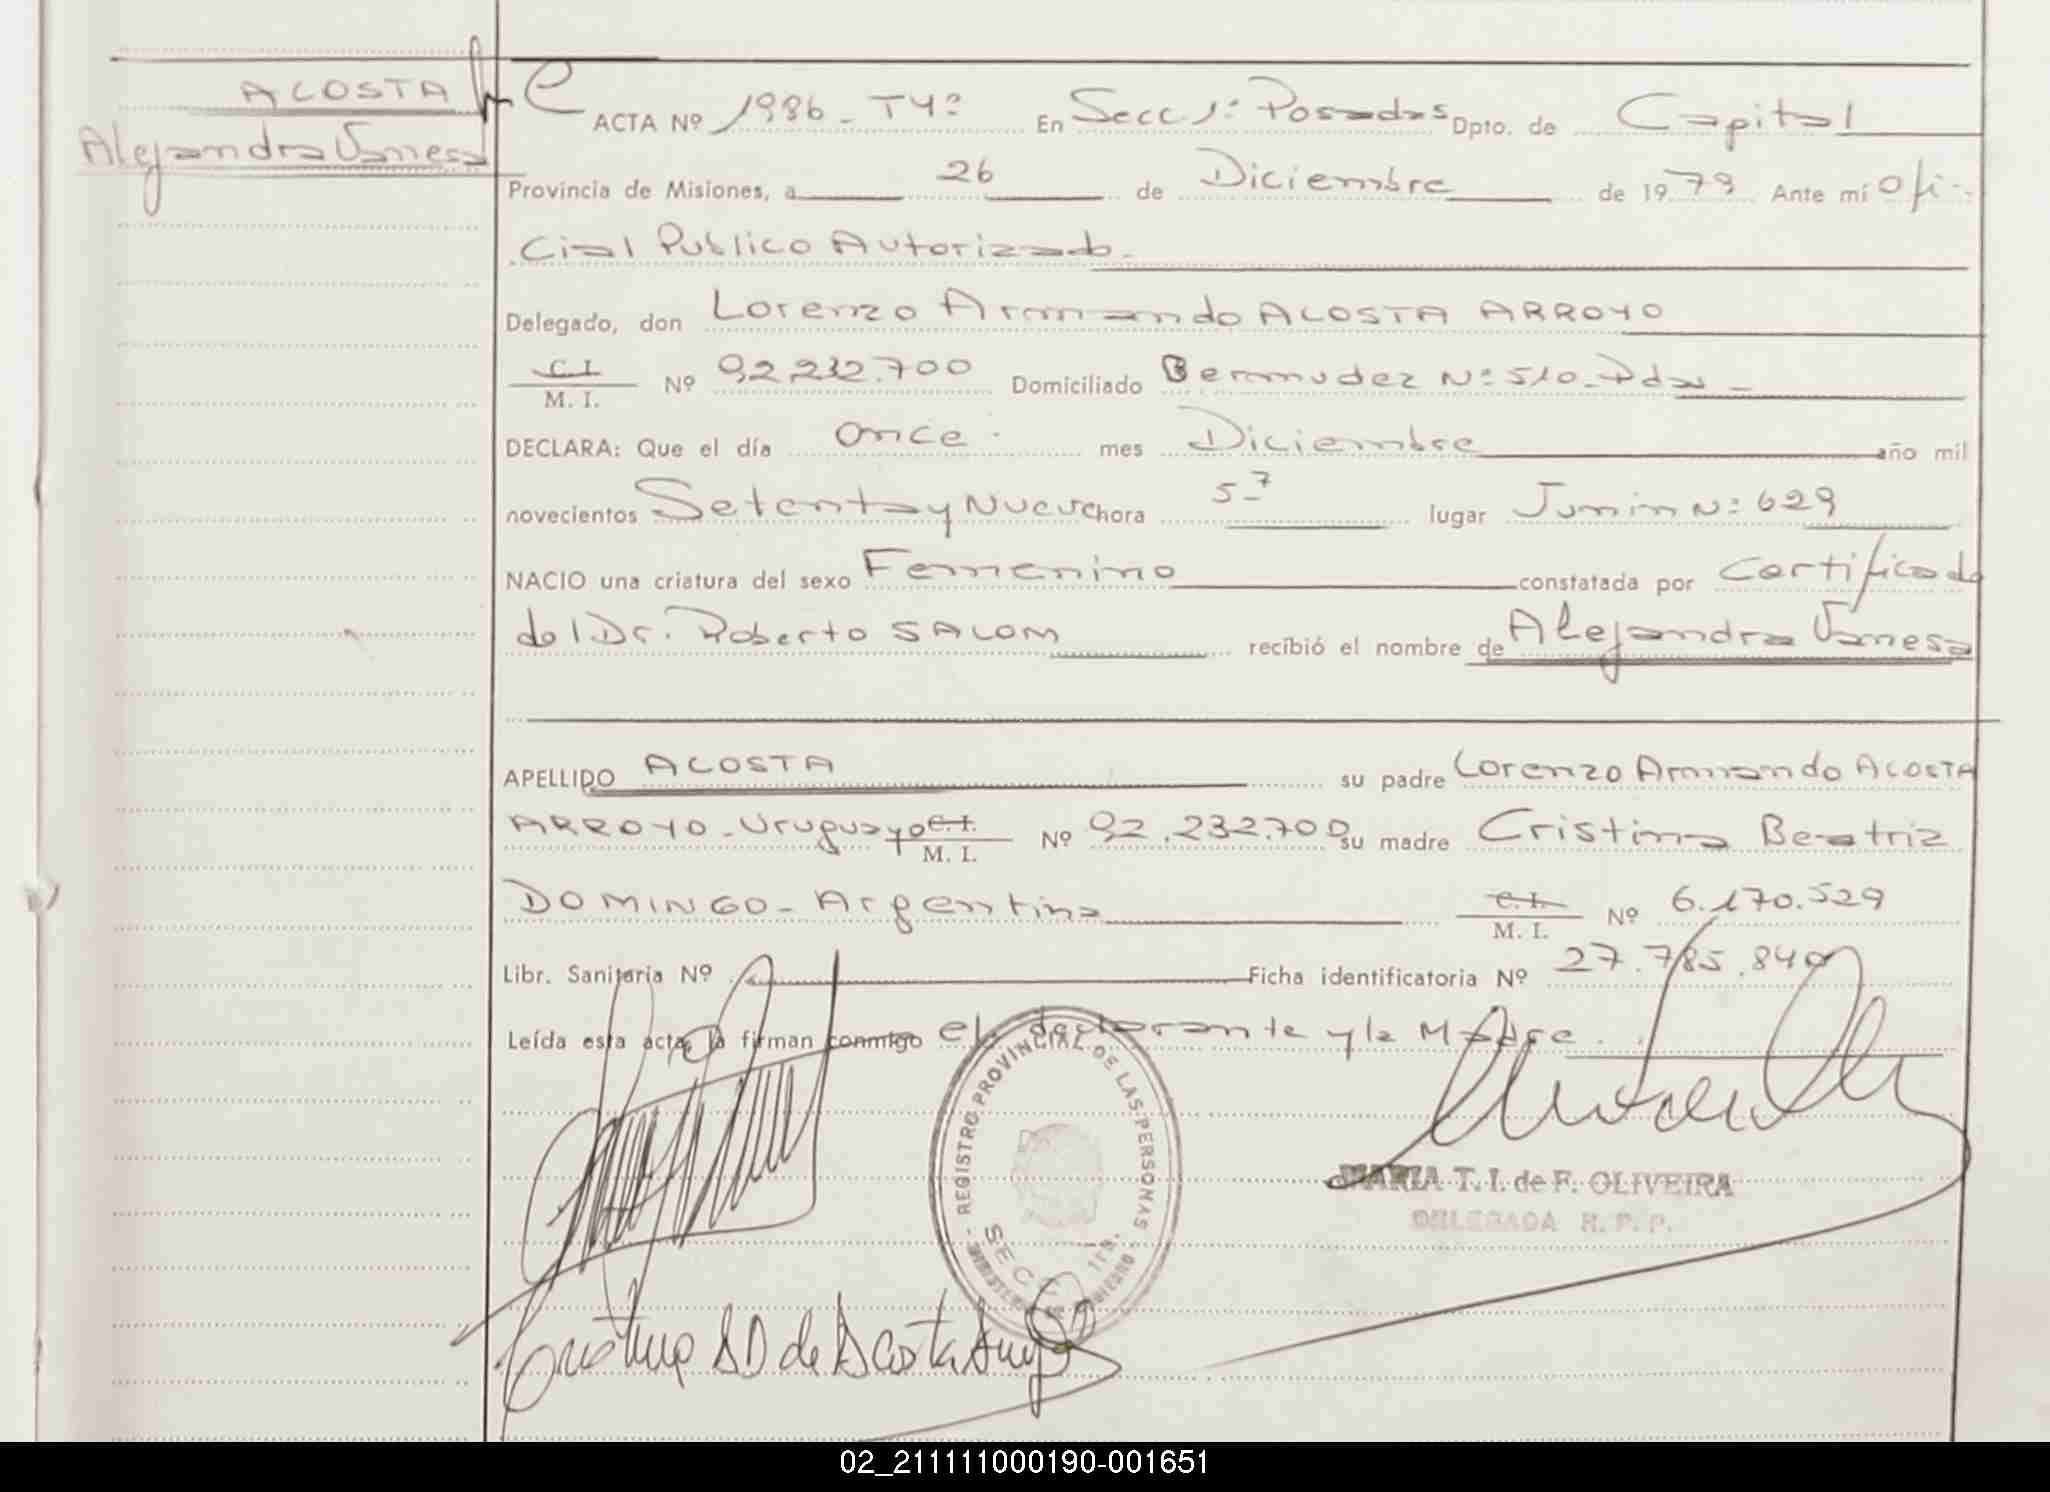 ACOSTA
Alejandra Vanesa
ACTA Nº 1986 - T4º En Secc 1º Posadas Dpto. de Capital
Provincia de Misiones, a 26 de Diciembre de 1979 Ante mí Ofi-
cial Publico Autorizado.
Delegado, don Lorenzo Armando ACOSTA ARROYO
C.I. / M. I. Nº 92.232.700 Domiciliado Bermudez Nº 510 - Pdas -
DECLARA: Que el día once mes Diciembre año mil
novecientos Setenta y Nueve hora 5-7 lugar Junin Nº 629
NACIO una criatura del sexo Femenino constatada por Certificado
del Dr. Roberto SALOM recibió el nombre de Alejandra Vanesa
APELLIDO ACOSTA su padre Lorenzo Armando ACOSTA
ARROYO - Uruguayo C.I. / M. I. Nº 92.232.700 su madre Cristina Beatriz
DOMINGO - Argentina C.I. / M. I. Nº 6.170.529
Libr. Sanitaria Nº Ficha identificatoria Nº 27.785.840
Leída esta acta, la firman conmigo el declarante y la Madre.
REGISTRO PROVINCIAL DE LAS PERSONAS
SECC. 1ra.
MARIA T. I. de F. OLIVEIRA
DELEGADA R. P. P.
de Acosta
02_211111000190-001651